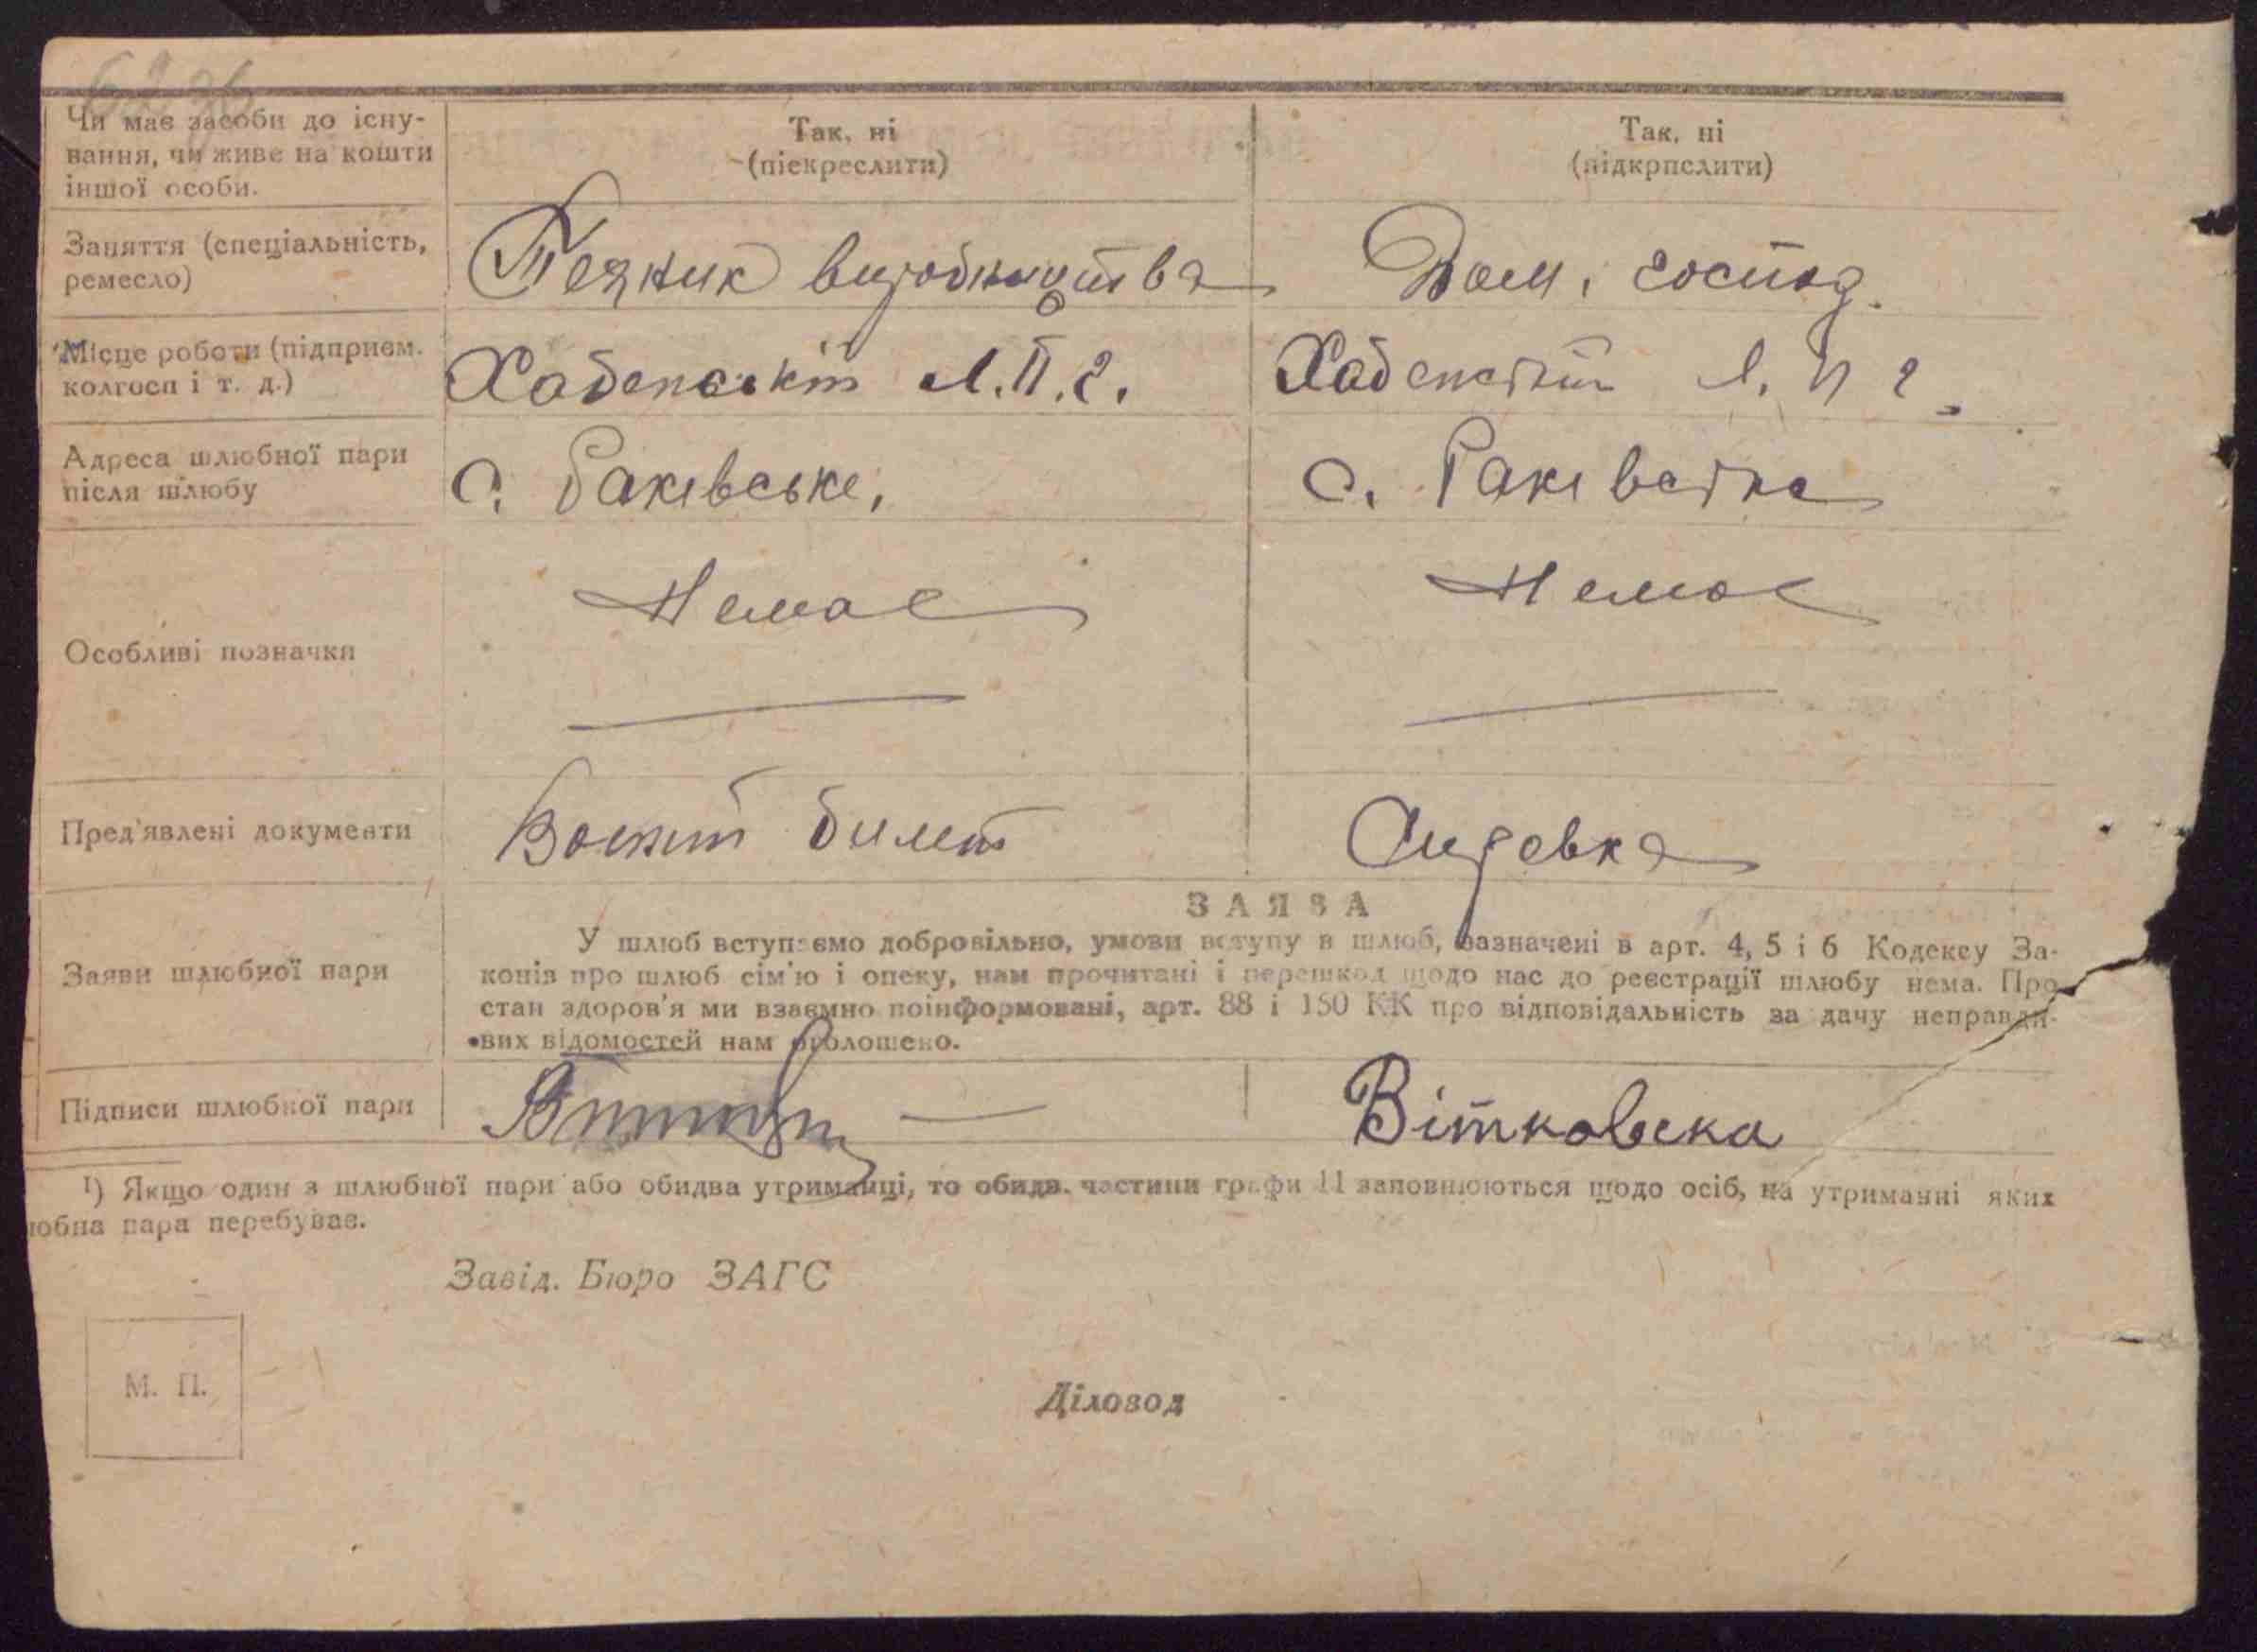 Чи має засоби до існу-
вання, чи живе на кошти
іншої особи.
Так, ні
(піекреслити)
Так, ні
(підкрпслити)
Заняття (спеціальність,
ремесло)
Технік виробництва
Дом. господ.
Місце роботи (підприєм.
колгосп і т. д.)
Л.П.Г.
Л. П Г.
Адреса шлюбної пари
після шлюбу
с. Раківське,
с. Раківське
Особливі позначки
Немає
Немає
Пред'явлені документи
билет
Справка
Заяви шлюбної пари
ЗАЯВА
У шлюб вступаємо добровільно, умови вступу в шлюб, зазначені в арт. 4, 5 і 6 Кодексу За-
конів про шлюб сім'ю і опеку, нам прочитані і перешкод щодо нас до реєстрації шлюбу нема. Про
стан здоров'я ми взаємно поінформовані, арт. 88 і 150 КК про відповідальність за дачу неправди-
вих відомостей нам оголошено.
Підписи шлюбної пари
Вітковска
1) Якщо один з шлюбної пари або обидва утриманці, то обидв. частини графи 11 заповнюються щодо осіб, на утриманні яких
юбна пара перебуває.
Завід. Бюро ЗАГС
М. П.
Діловод